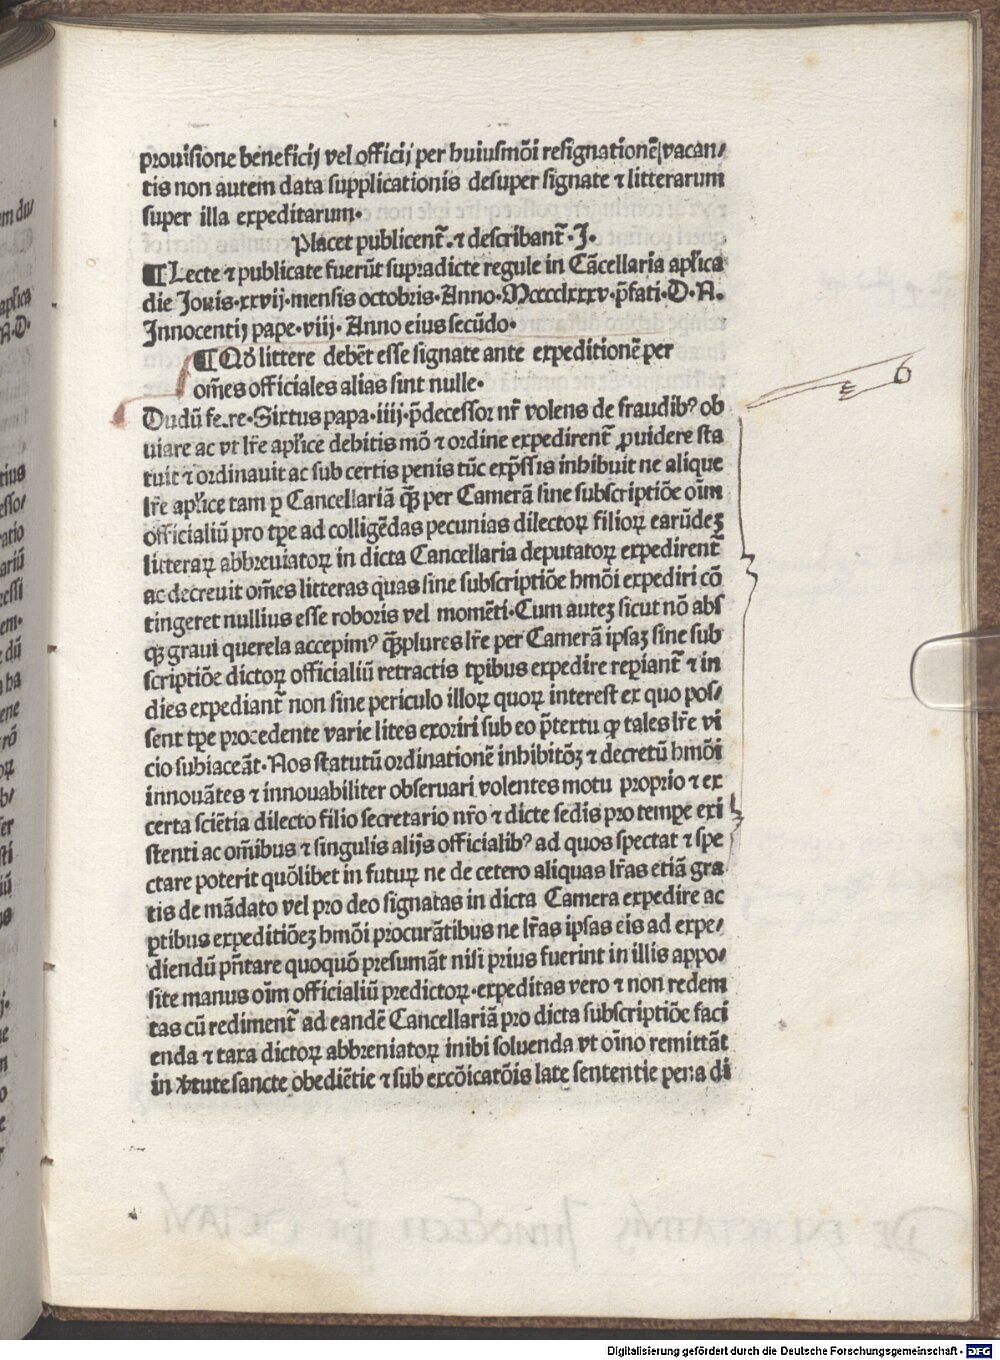 prouisione beneficij vel officij per huiusmõi resignationẽ vacan/
tis non autem data supplicationis desuper signate ⁊ litterarum
super illa expeditarum.
Placet publicent̃. ⁊ describant̃. J.
¶ Lecte ⁊ publicate fuerũt supradicte regule in Cãcellaria apľica
die Jouis. xxvij. mensis octobris. Anno. Mcccclxxxv. p̃fati. D. N.
Innocentij pape. viij. Anno eius secũdo.
¶ Qď littere debẽt esse signate ante expeditionẽ per
om̃es officiales alias sint nulle.
Dudũ fe.re. Sixtus papa. iiij. p̃decessor nr̃ volens de fraudibꝰ ob
uiare ac vt lr̃e apľice debitis mõ ⁊ ordine expedirent̃ ꝓuidere sta
tuit ⁊ ordinauit ac sub certis penis tũc exp̃ssis inhibuit ne alique
lr̃e apľice tam ꝑ Cancellariã qꝫ̃ per Camerã sine subscriptiõe oĩm
officialiũ pro tp̃e ad colligẽdas pecunias dilectoꝝ filioꝝ earũdeꝫ
litteraꝝ abbreuiatoꝝ in dicta Cancellaria deputatoꝝ expedirent̃
ac decreuit om̃es litteras quas sine subscriptiõe hmõi expediri cõ
tingeret nullius esse roboris vel momẽti. Cum auteꝫ sicut nõ abs
qꝫ graui querela accepimꝰ qꝫ̃plures lr̃e per Camerã ipsaꝫ sine sub
scriptiõe dictoꝝ officialiũ retractis tp̃ibus expedire reꝑiant̃ ⁊ in
dies expediant̃ non sine periculo illoꝝ quoꝝ interest ex quo pos/
sent tp̃e procedente varie lites exoriri sub eo p̃textu ꝙ tales lr̃e vi
cio subiaceãt. Nos statutũ ordinationẽ inhibitõꝫ ⁊ decretũ hmõi
innouãtes ⁊ innouabiliter obseruari volentes motu proprio ⁊ ex
certa sciẽtia dilecto filio secretario nr̃o ⁊ dicte sedis pro tempe exi
stenti ac om̃ibus ⁊ singulis alijs officialibꝰ ad quos spectat ⁊ spe
ctare poterit quõlibet in futuꝝ ne de cetero aliquas lr̃as etiã gra
tis de mãdato vel pro deo signatas in dicta Camera expedire ac
ꝑtibus expeditiõeꝫ hmõi procurãtibus ne lr̃as ipsas eis ad expe/
diendũ pñtare quoquõ presumãt nisi prius fuerint in illis appo/
site manus oĩm officialiũ predictoꝝ. expeditas vero ⁊ non redem
tas cũ rediment̃ ad eandẽ Cancellariã pro dicta subscriptiõe faci
enda ⁊ taxa dictoꝝ abbreniatoꝝ inibi soluenda vt oĩno remittãt
in v̓tute sancte obediẽtie ⁊ sub excõicatõis late sententie pena di
Digitalisierung gefördert durch die Deutsche Forschungsgemeinschaft - DFG